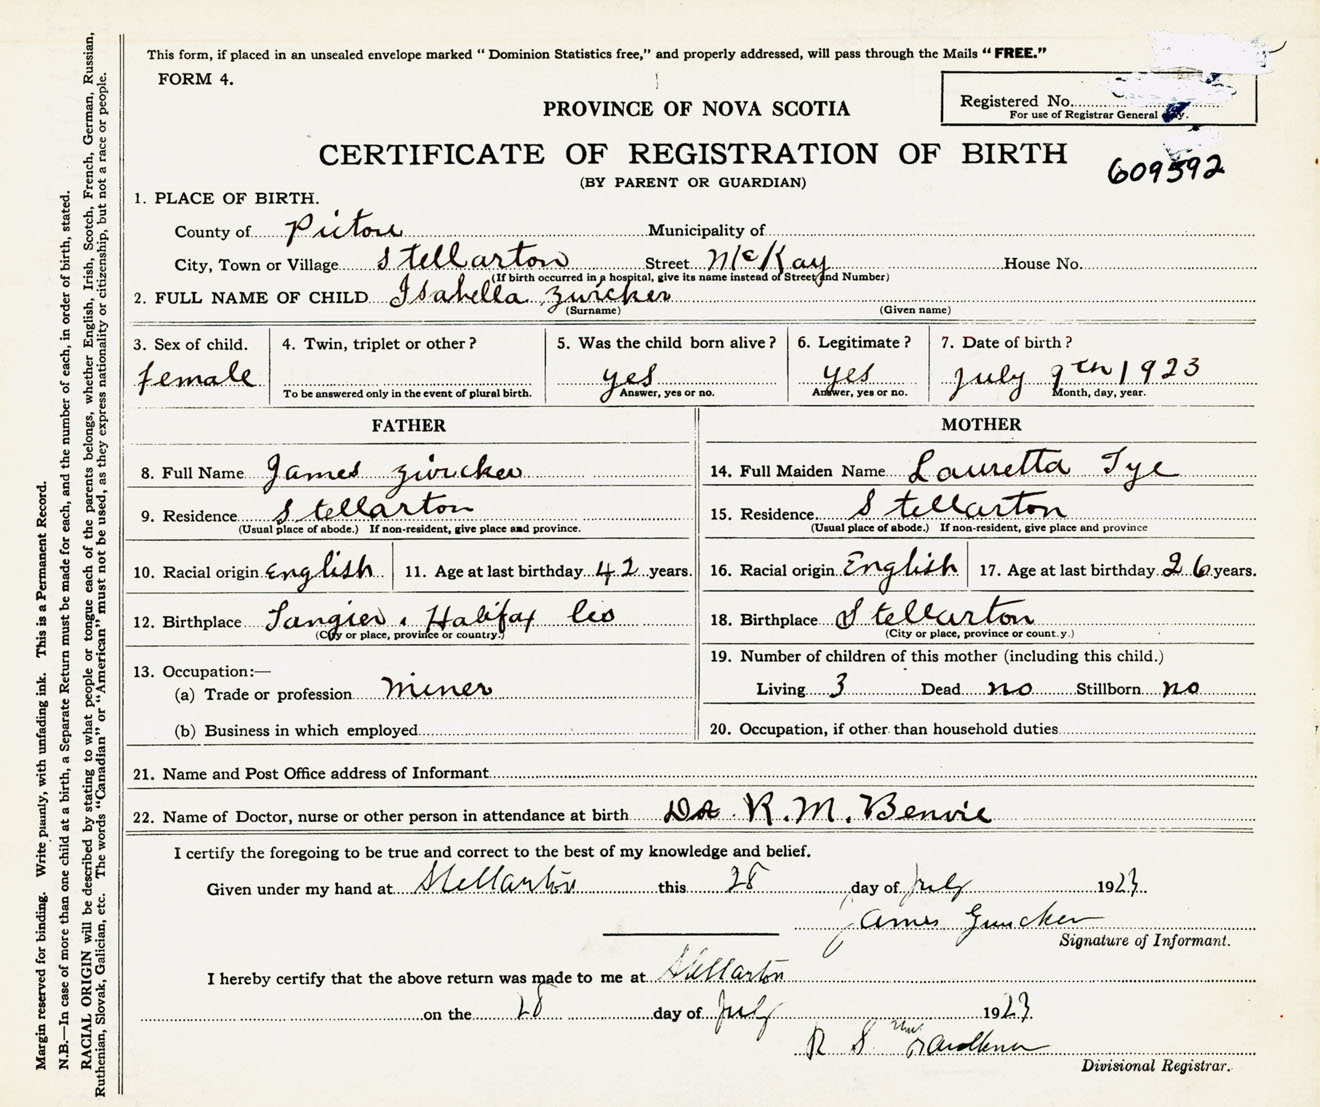 This form, if placed in an unsealed envelope marked "Dominion Statistics free," and properly addressed, will pass through the Mails "FREE."
FORM 4.
PROVINCE OF NOVA SCOTIA
Registered No.
For use of Registrar General
CERTIFICATE OF REGISTRATION OF BIRTH
609592
(BY PARENT OR GUARDIAN)
1. PLACE OF BIRTH.
County of Pictou Municipality of
City, Town or Village Stellarton Street McKay House No.
(If birth occurred in a hospital, give its name instead of Street and Number)
2. FULL NAME OF CHILD Isabella Zwicker
(Surname) (Given name)
3. Sex of child. 4. Twin, triplet or other? 5. Was the child born alive? 6. Legitimate? 7. Date of birth?
female yes yes July 9th 1923
To be answered only in the event of plural birth. Answer, yes or no. Answer, yes or no. Month, day, year.
FATHER MOTHER
8. Full Name James Zwicker 14. Full Maiden Name Lauretta Tye
9. Residence Stellarton 15. Residence Stellarton
(Usual place of abode.) If non-resident, give place and province. (Usual place of abode.) If non-resident, give place and province
10. Racial origin English 11. Age at last birthday 42 years. 16. Racial origin English 17. Age at last birthday 26 years.
12. Birthplace Tangier, Halifax Co 18. Birthplace Stellarton
(City or place, province or country.) (City or place, province or count.y.)
13. Occupation:— 19. Number of children of this mother (including this child.)
(a) Trade or profession miner Living 3 Dead no Stillborn no
(b) Business in which employed 20. Occupation, if other than household duties
21. Name and Post Office address of Informant
22. Name of Doctor, nurse or other person in attendance at birth Dr. R. M. Benvie
I certify the foregoing to be true and correct to the best of my knowledge and belief.
Given under my hand at Stellarton this 28 day of July 1923.
James Zwicker
Signature of Informant.
I hereby certify that the above return was made to me at Stellarton
on the 28 day of July 1923.
R S Faulkner
Divisional Registrar.
Margin reserved for binding. Write plainly, with unfading ink. This is a Permanent Record.
N.B.—In case of more than one child at a birth, a Separate Return must be made for each, and the number of each, in order of birth, stated.
RACIAL ORIGIN will be described by stating to what people or tongue each of the parents belongs, whether English, Irish, Scotch, French, German, Russian,
Ruthenian, Slovak, Galician, etc. The words "Canadian" or "American" must not be used, as they express nationality or citizenship, but not a race or people.